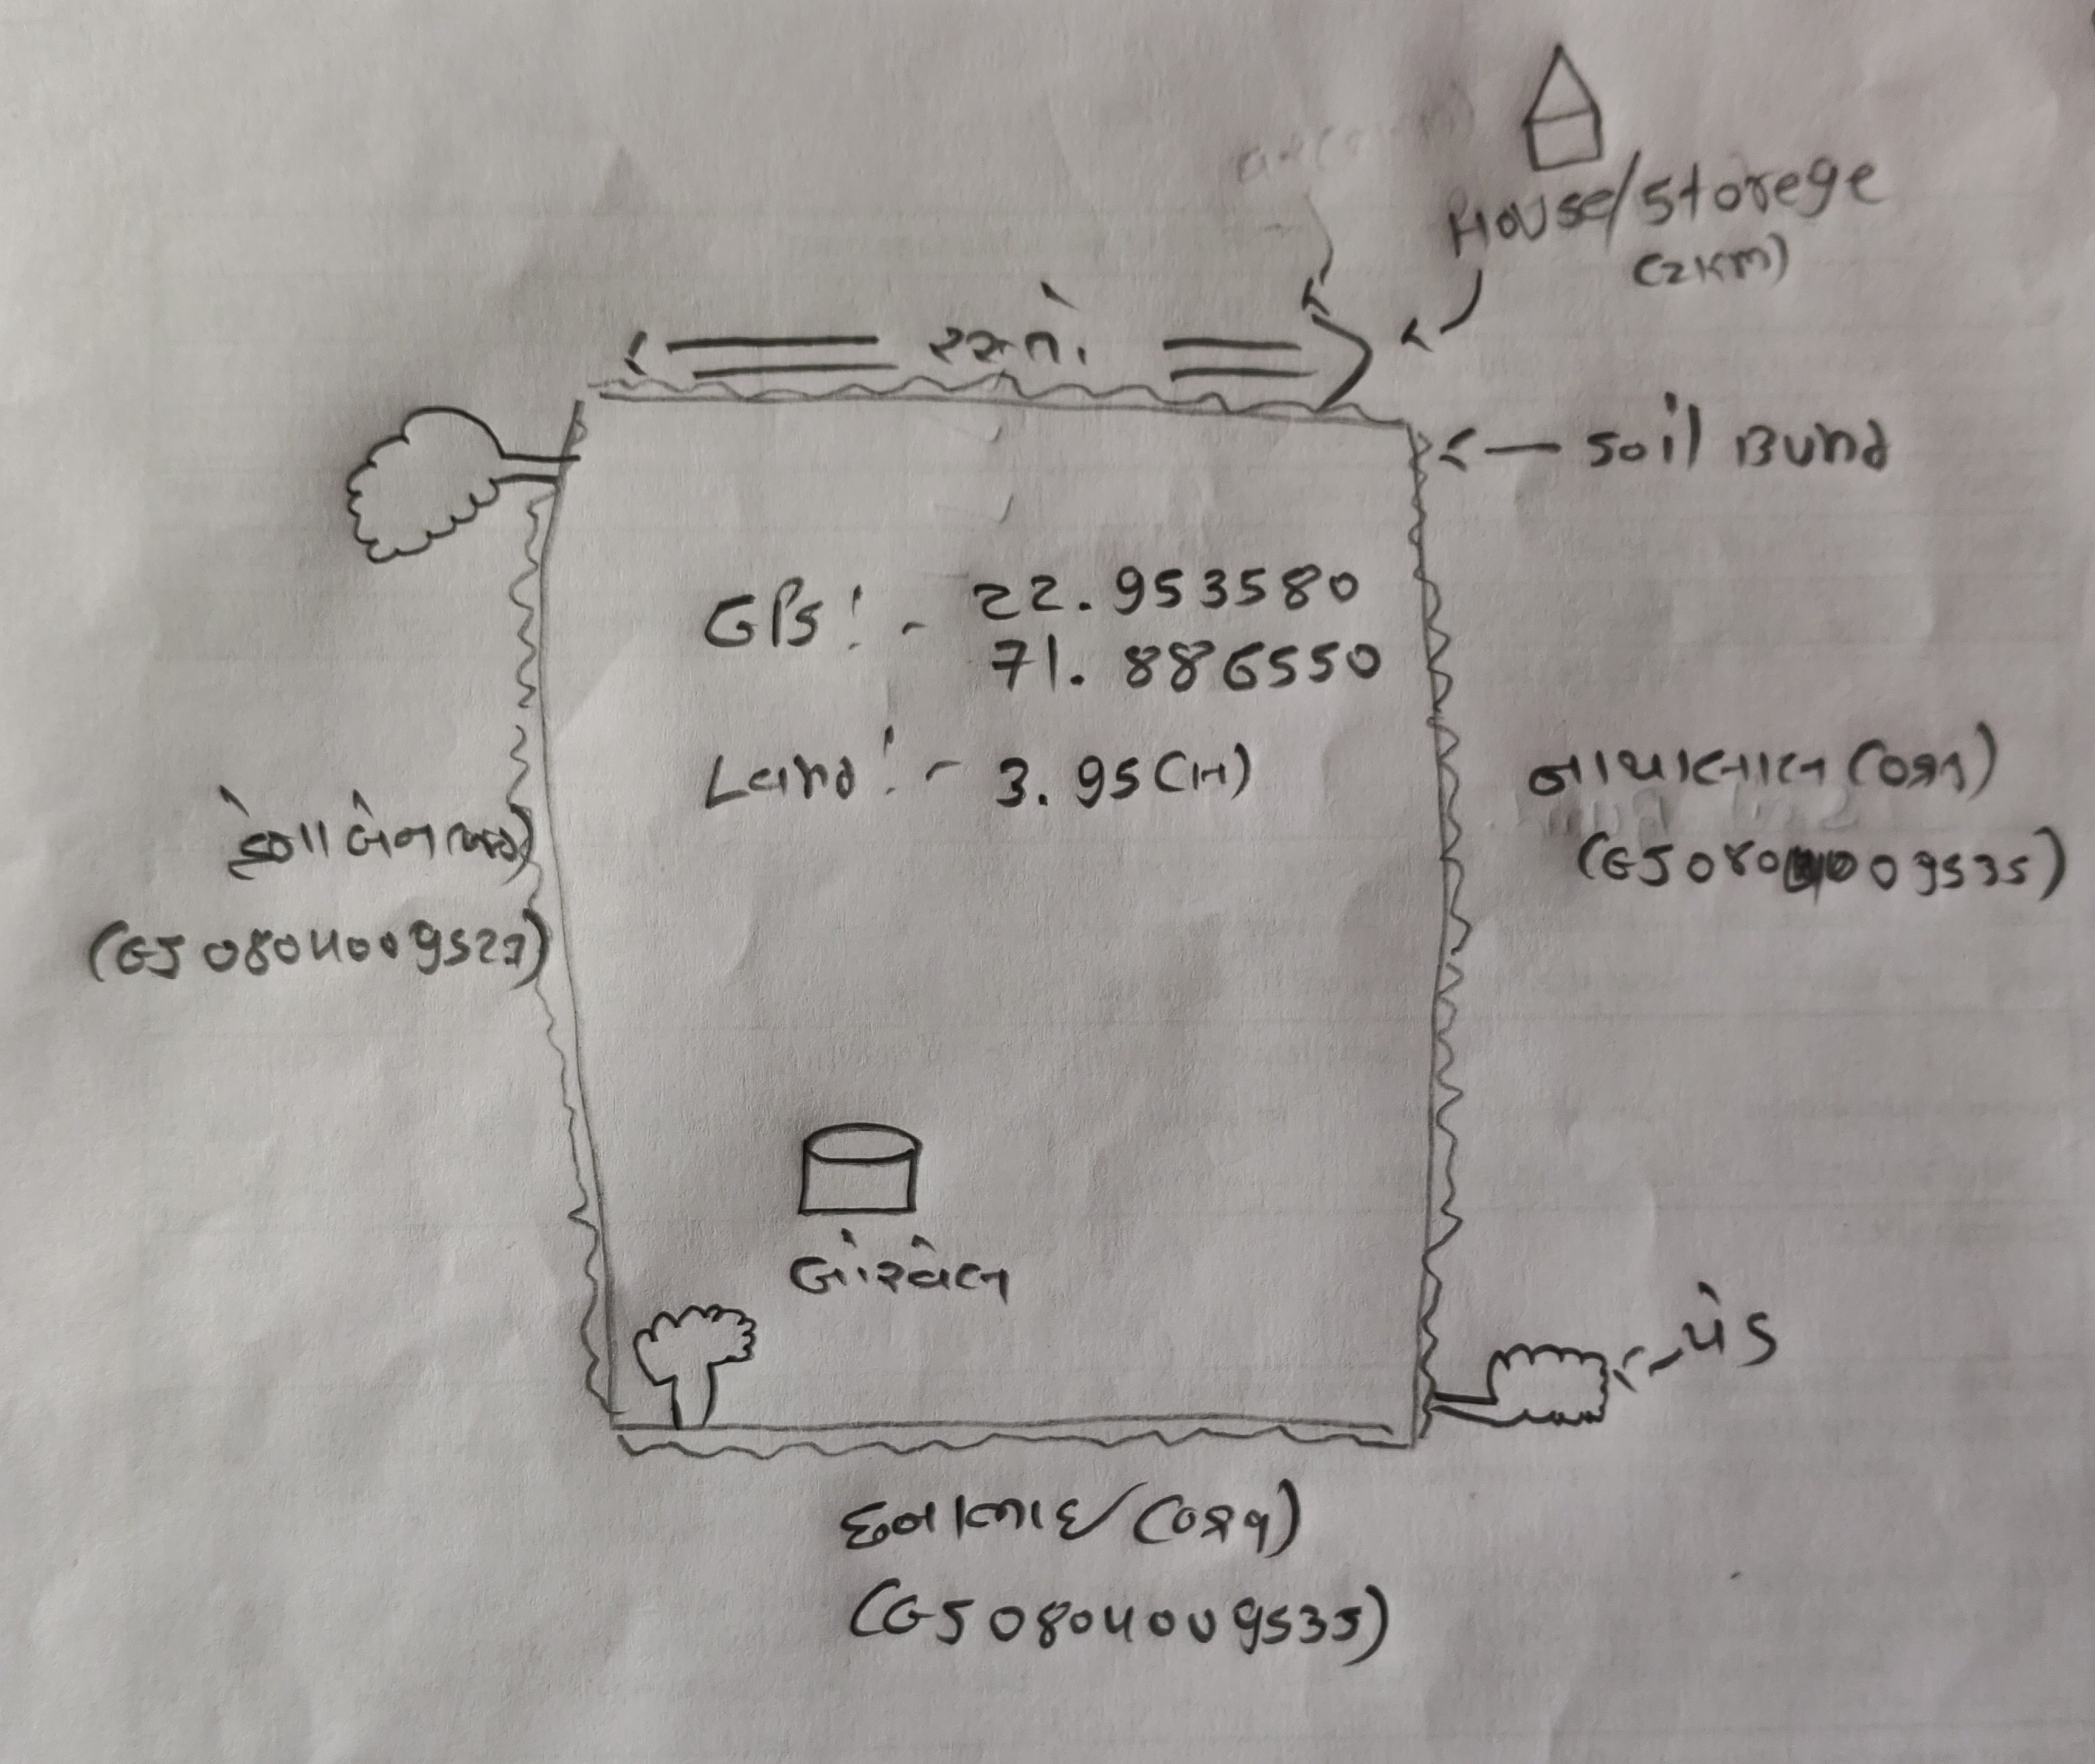 House/storege
(2km)
રસ્તો
soil Bund
GPS:- 22.953580
71.886550
Land:- 3.95(H)
નાથાલાલ
(GJ0804009535)
બેન
(GJ0804009527)
બોરવેલ
પેડ
છનાભાઈ
(GJ0804009535)